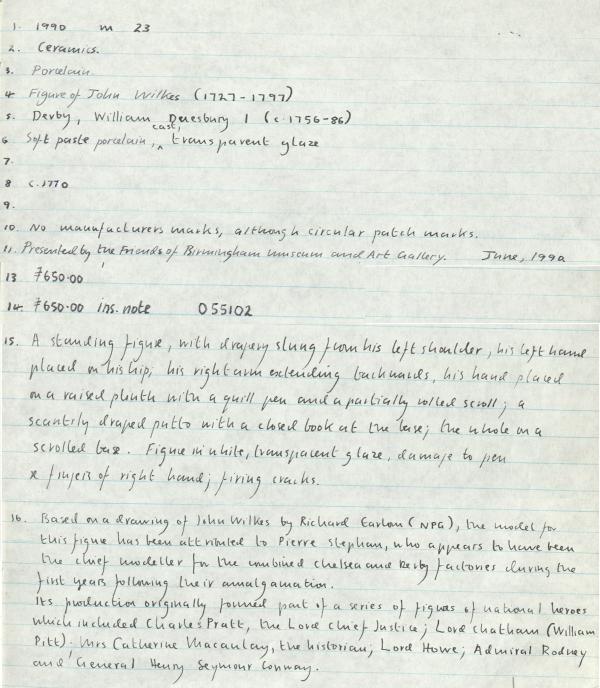 1. 1990 M 23
2. Ceramics.
3. Porcelain
4 Figure of John Wilkes (1727-1797)
5. Derby, William Duesbury I (c.1756-86)
6 Soft paste porcelain, cast, transparent glaze
7.
8 c.1770
9.
10. No manufacturers marks, although circular patch marks.
11. Presented by the Friends of Birmingham Museum and Art Gallery. June, 1990
13 £650.00
14. £650.00 ins. note 055102
15. A standing figure, with drapery slung from his left shoulder, his left hand
placed on his hip; his right arm extending backwards, his hand placed
on a raised plinth with a quill pen and a partially rolled scroll; a
scantily draped putto with a closed book at the base; the whole on a
scrolled base. Figure in white, transparent glaze, damage to pen
& fingers of right hand; firing cracks.
16. Based on a drawing of John Wilkes by Richard Earlom (NPG), the model for
this figure has been attributed to Pierre Stephan, who appears to have been
the chief modeller for the combined Chelsea and Derby factories during the
first years following their amalgamation.
Its production originally formed part of a series of figures of national heroes
which included Charles Pratt, the Lord Chief Justice; Lord Chatham (William
Pitt). Mrs Catherine Macaulay, the historian; Lord Howe; Admiral Rodney
and General Henry Seymour Conway.